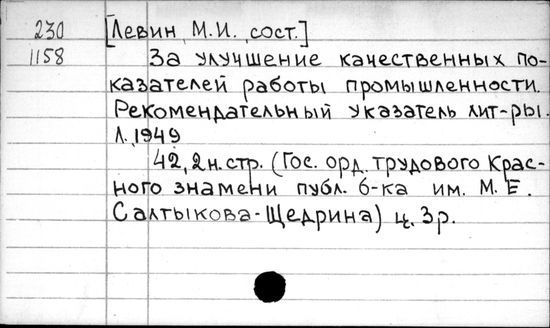 230 [Левин, М.И. сост.]
1158 За улучшение качественных по-
казателей работы промышленности.
Рекомендательный указатель лит-ры.
Л., 1949
42, 2 н. стр. (Гос. орд. трудового Крас-
ного знамени публ. б-ка им. М. Е.
Салтыкова-Щедрина) ц. 3 р.